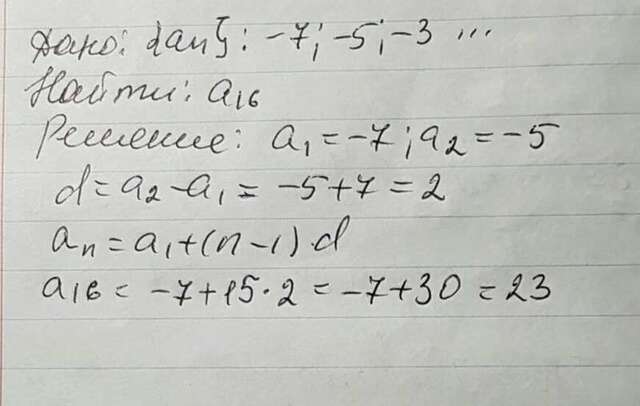 Дано: {an}: -7; -5; -3 ...
Найти: a₁₆
Решение: a₁ = -7; a₂ = -5
d = a₂ - a₁ = -5 + 7 = 2
aₙ = a₁ + (n - 1) d
a₁₆ = -7 + 15 · 2 = -7 + 30 = 23